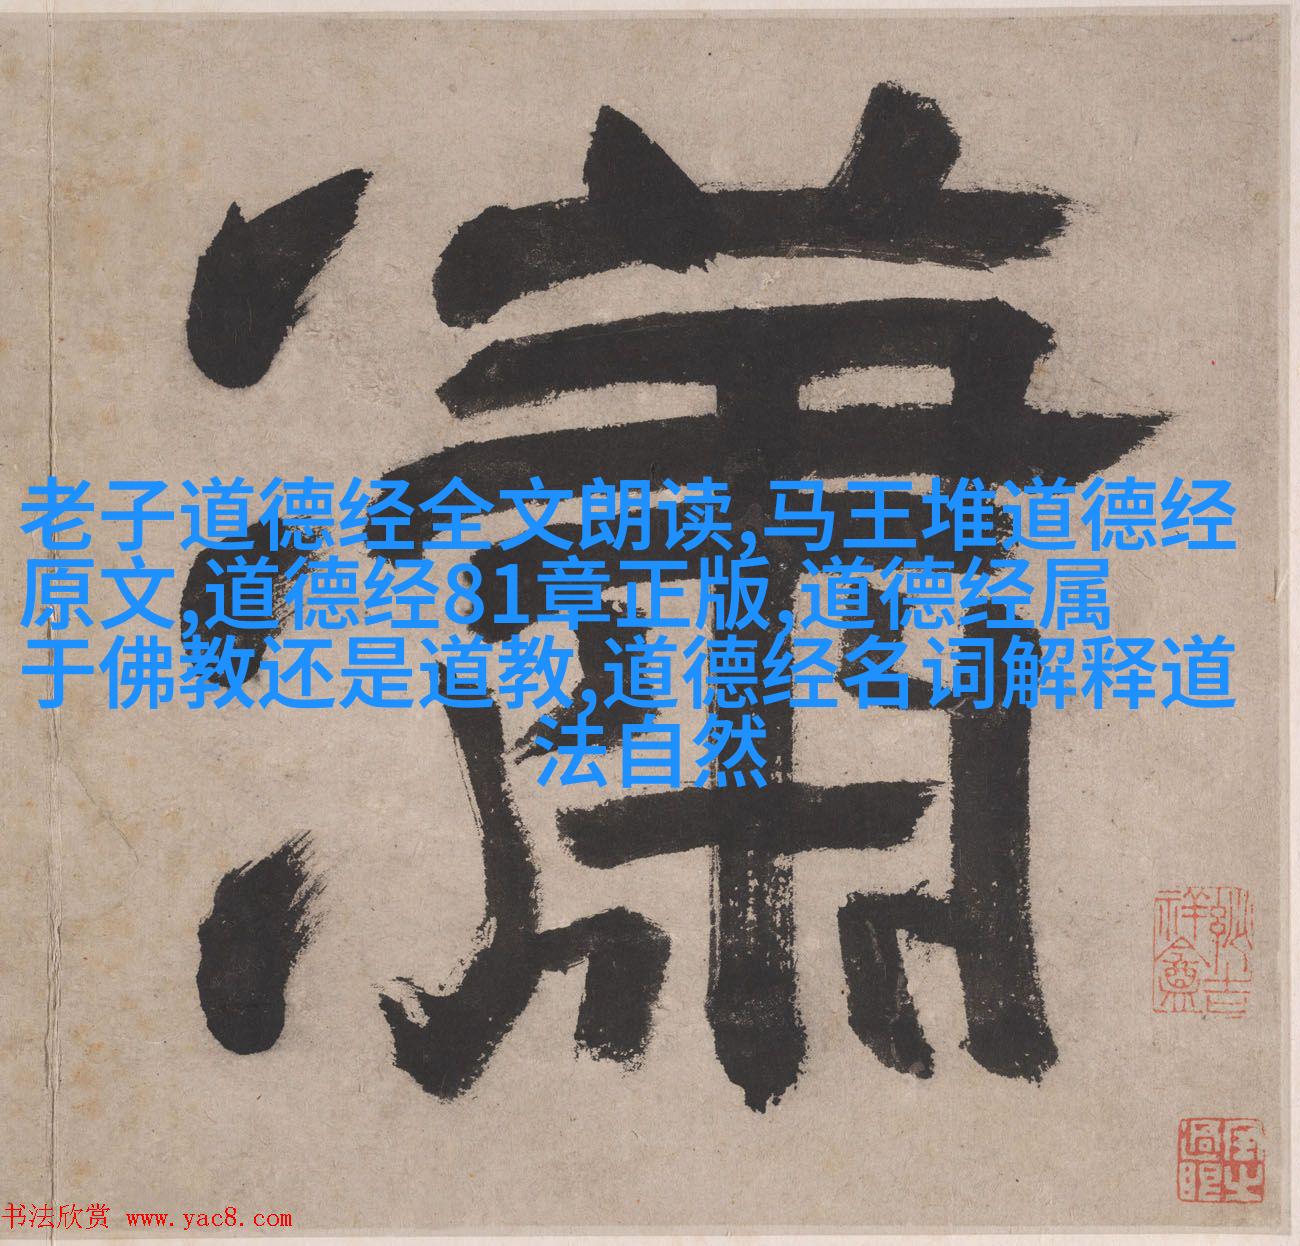 瀟
老子道德经全文朗读,马王堆道德经
原文,道德经81章正版,道德经属
于佛教还是道教,道德经名词解释道
法自然
书法欣赏 www.yac8.com